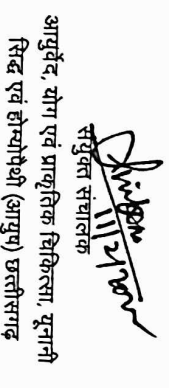 11/2/2022
संयुक्त संचालक
आयुर्वेद, योग एवं प्राकृतिक चिकित्सा, यूनानी
सिद्ध एवं होम्योपैथी (आयुष) छत्तीसगढ़